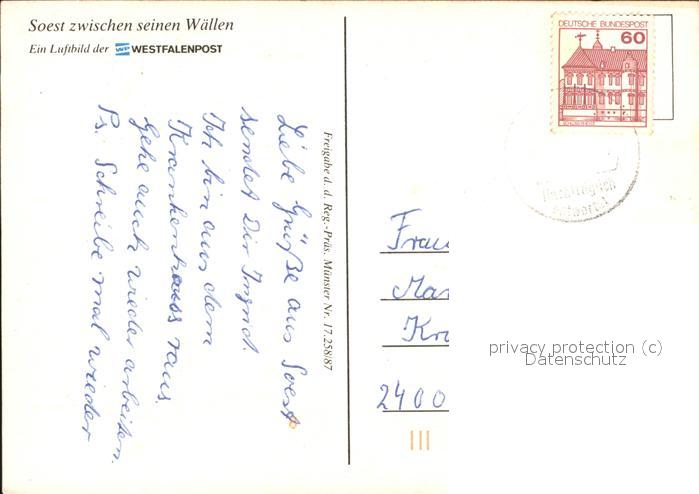 Soest zwischen seinen Wällen
Ein Luftbild der WP WESTFALENPOST
Liebe Grüße aus Soest
sendet Dir Ingrid.
Ich bin aus dem
Krankenhauss raus.
Gehe auch wieder arbeiten.
Ps. Schreibe mal wieder
Freigabe d. d. Reg.-Präs. Münster Nr. 17.258/87
DEUTSCHE BUNDESPOST
60
Nachträglich
entwertet
Frau
Mar
Kr
2400
privacy protection (c)
Datenschutz